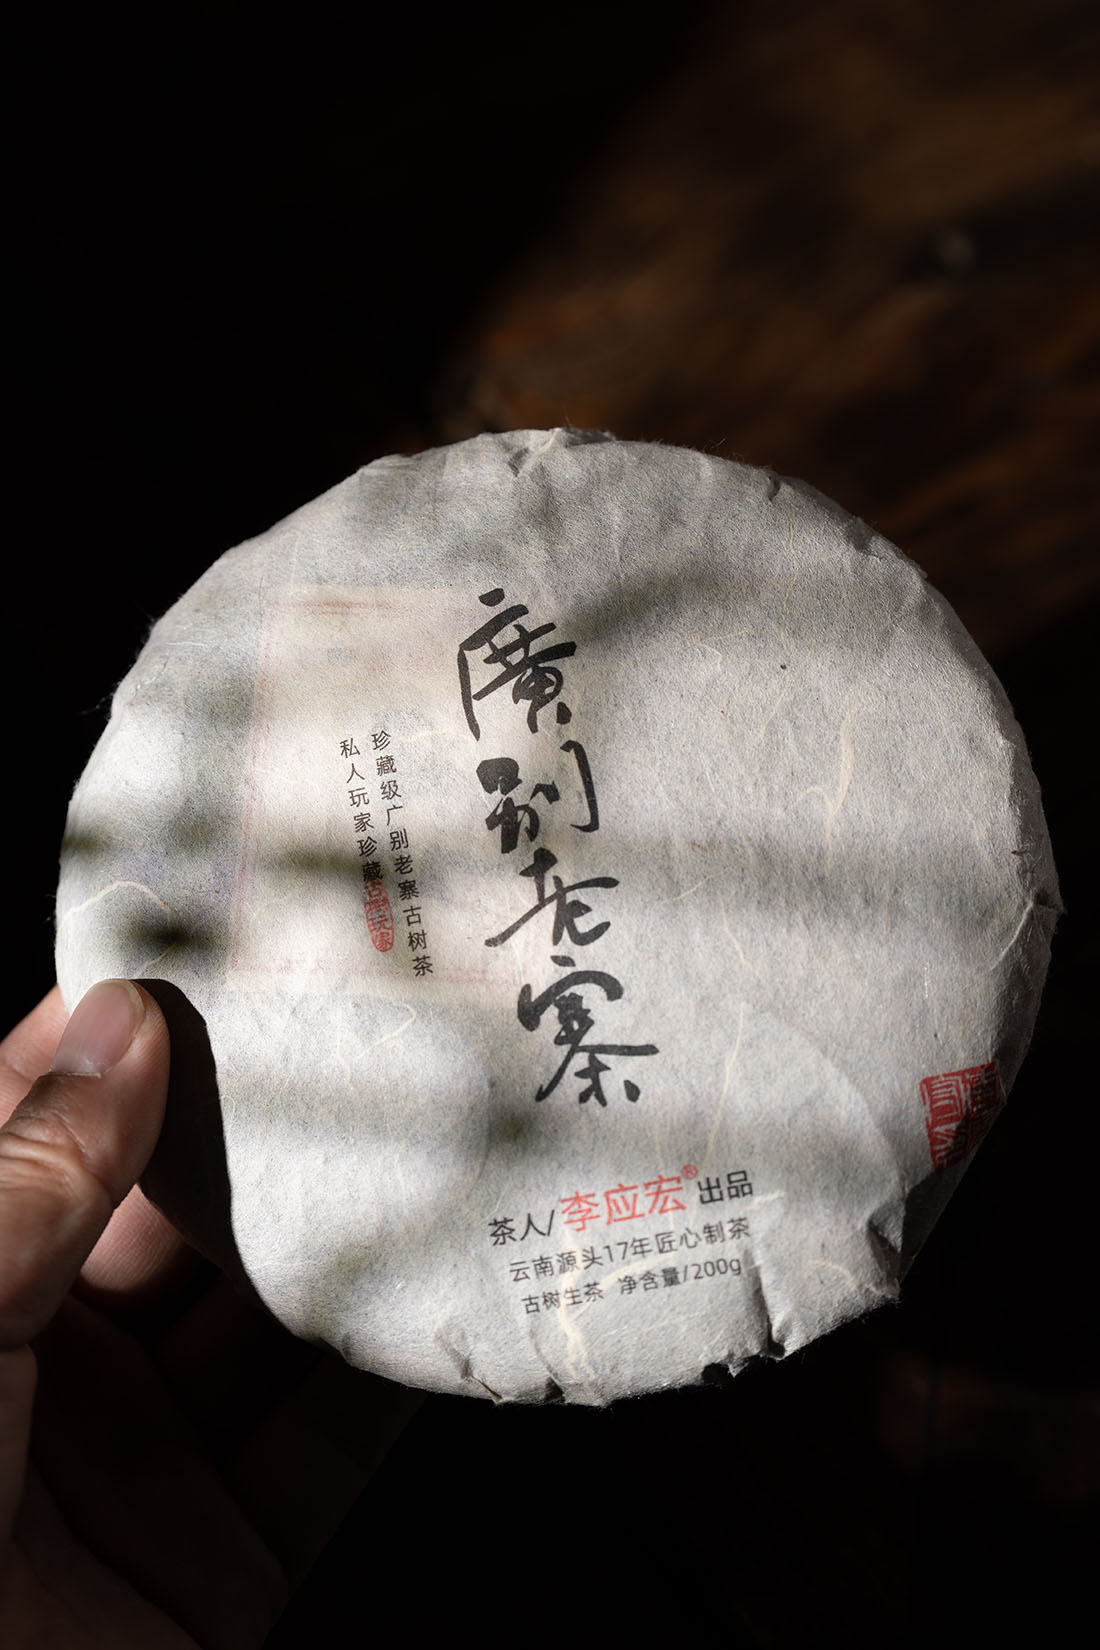 廣别老寨
珍藏级广别老寨古树茶
私人玩家珍藏
茶人/李应宏®出品
云南源头17年匠心制茶
古树生茶 净含量/200g